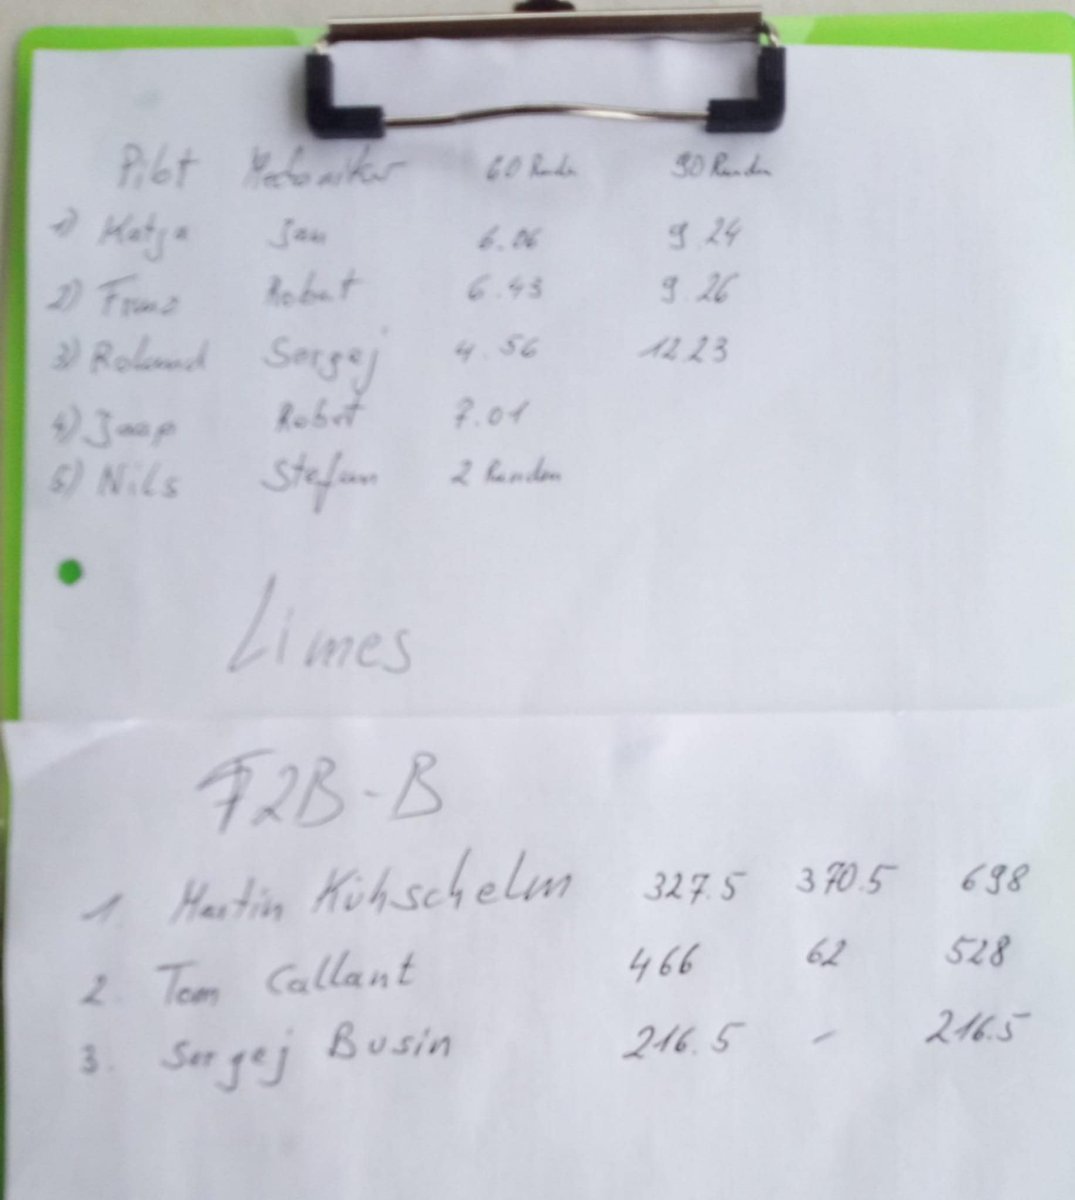 Pilot Mechaniker 60 Runden 90 Runden
1) Katja Jan 6.06 9.24
2) Franz Robert 6.43 9.26
3) Roland Sergej 4.56 12.23
4) Jaap Robert 7.01
5) Nils Stefan 2 Runden
Limes
F2B-B
1. Martin Kühschelm 327.5 370.5 698
2. Tom Callant 466 62 528
3. Sergej Busin 216.5 - 216.5